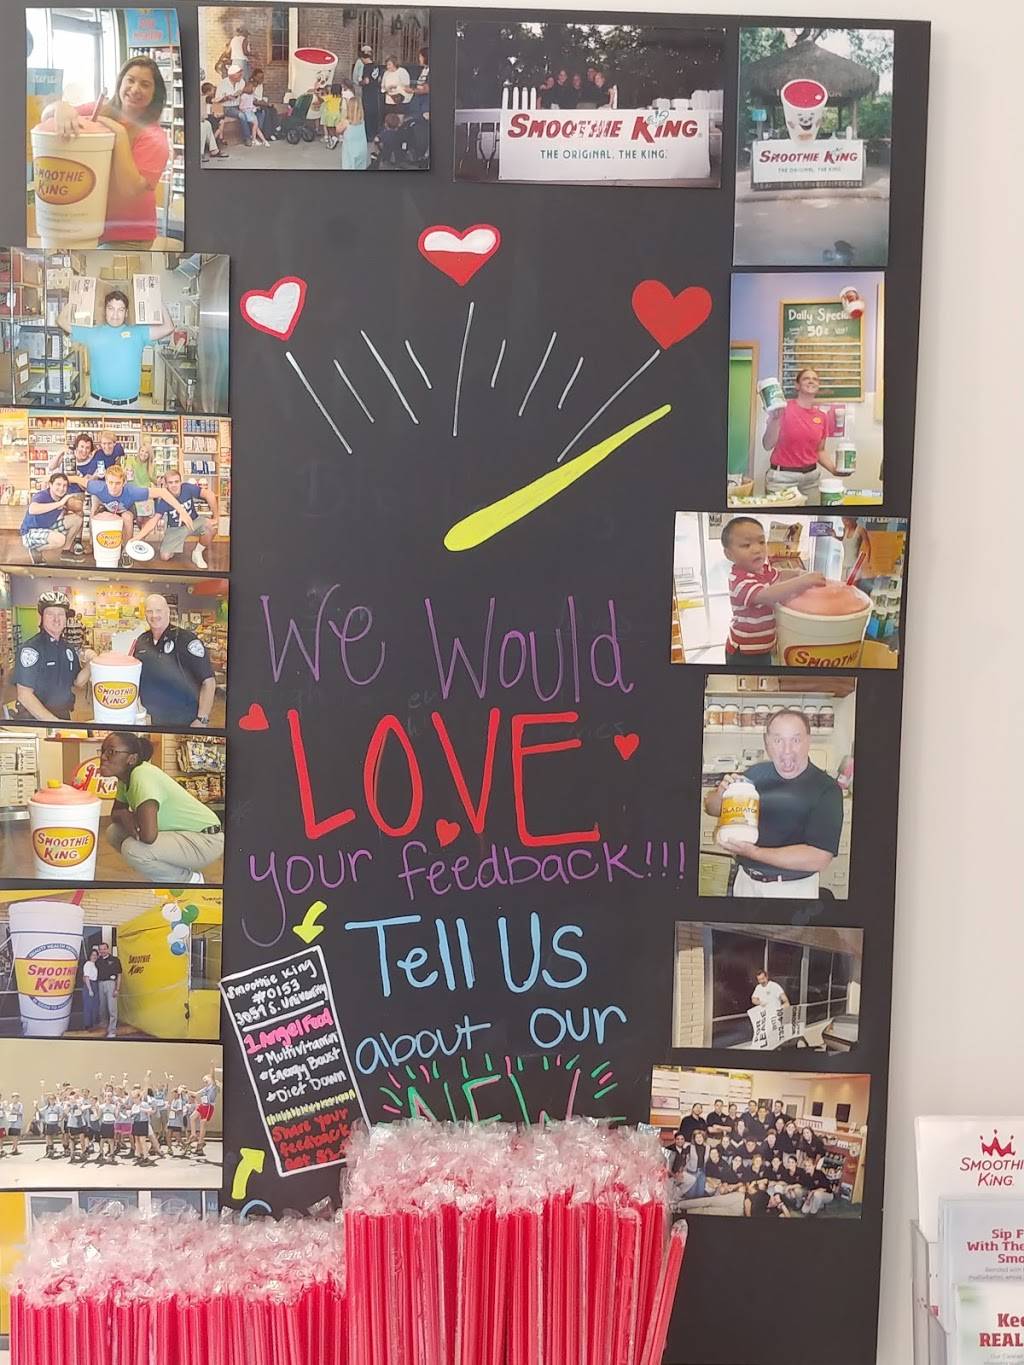 SMOOTHIE KING
SMOOTHIE KING
THE ORIGINAL. THE KING.
SMOOTHIE KING
THE ORIGINAL. THE KING.
Daily Specials
SMOOTHIE
KING
SMOOTHIE
KING
SMOOTHIE
KING
SMOOTHIE
GLADIATOR
FOR
LEASE
SMOOTHIE
KING
SMOOTHIE
KING
We Would
LOVE
your feedback!!!
Tell Us
about our
NEW
Smoothie King
#0153
3059 S. University
1 Angel Food
+ Multivitamin
+ Energy Boost
+ Diet Down
Share your
feedback
SMOOTHIE
KING
Sip
With The
Smo
Kee
REAL